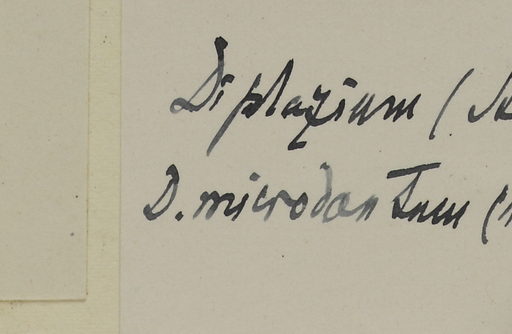 Diplazium (
D. microdontum (